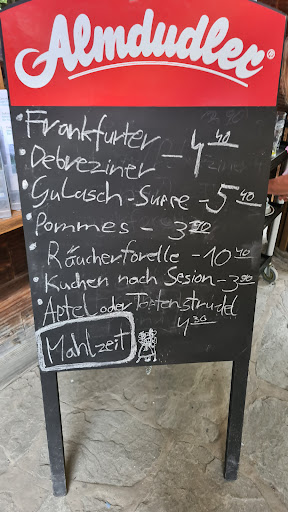 Almdudler®
• Frankfurter
Debreziner - 4 40
• Gulasch-Suppe - 5 40
• Pommes - 3
• Räucherforelle - 10 40
• Kuchen nach Sesion - 3 90
• Apfel oder Topfenstrudel
4 30
Mahlzeit